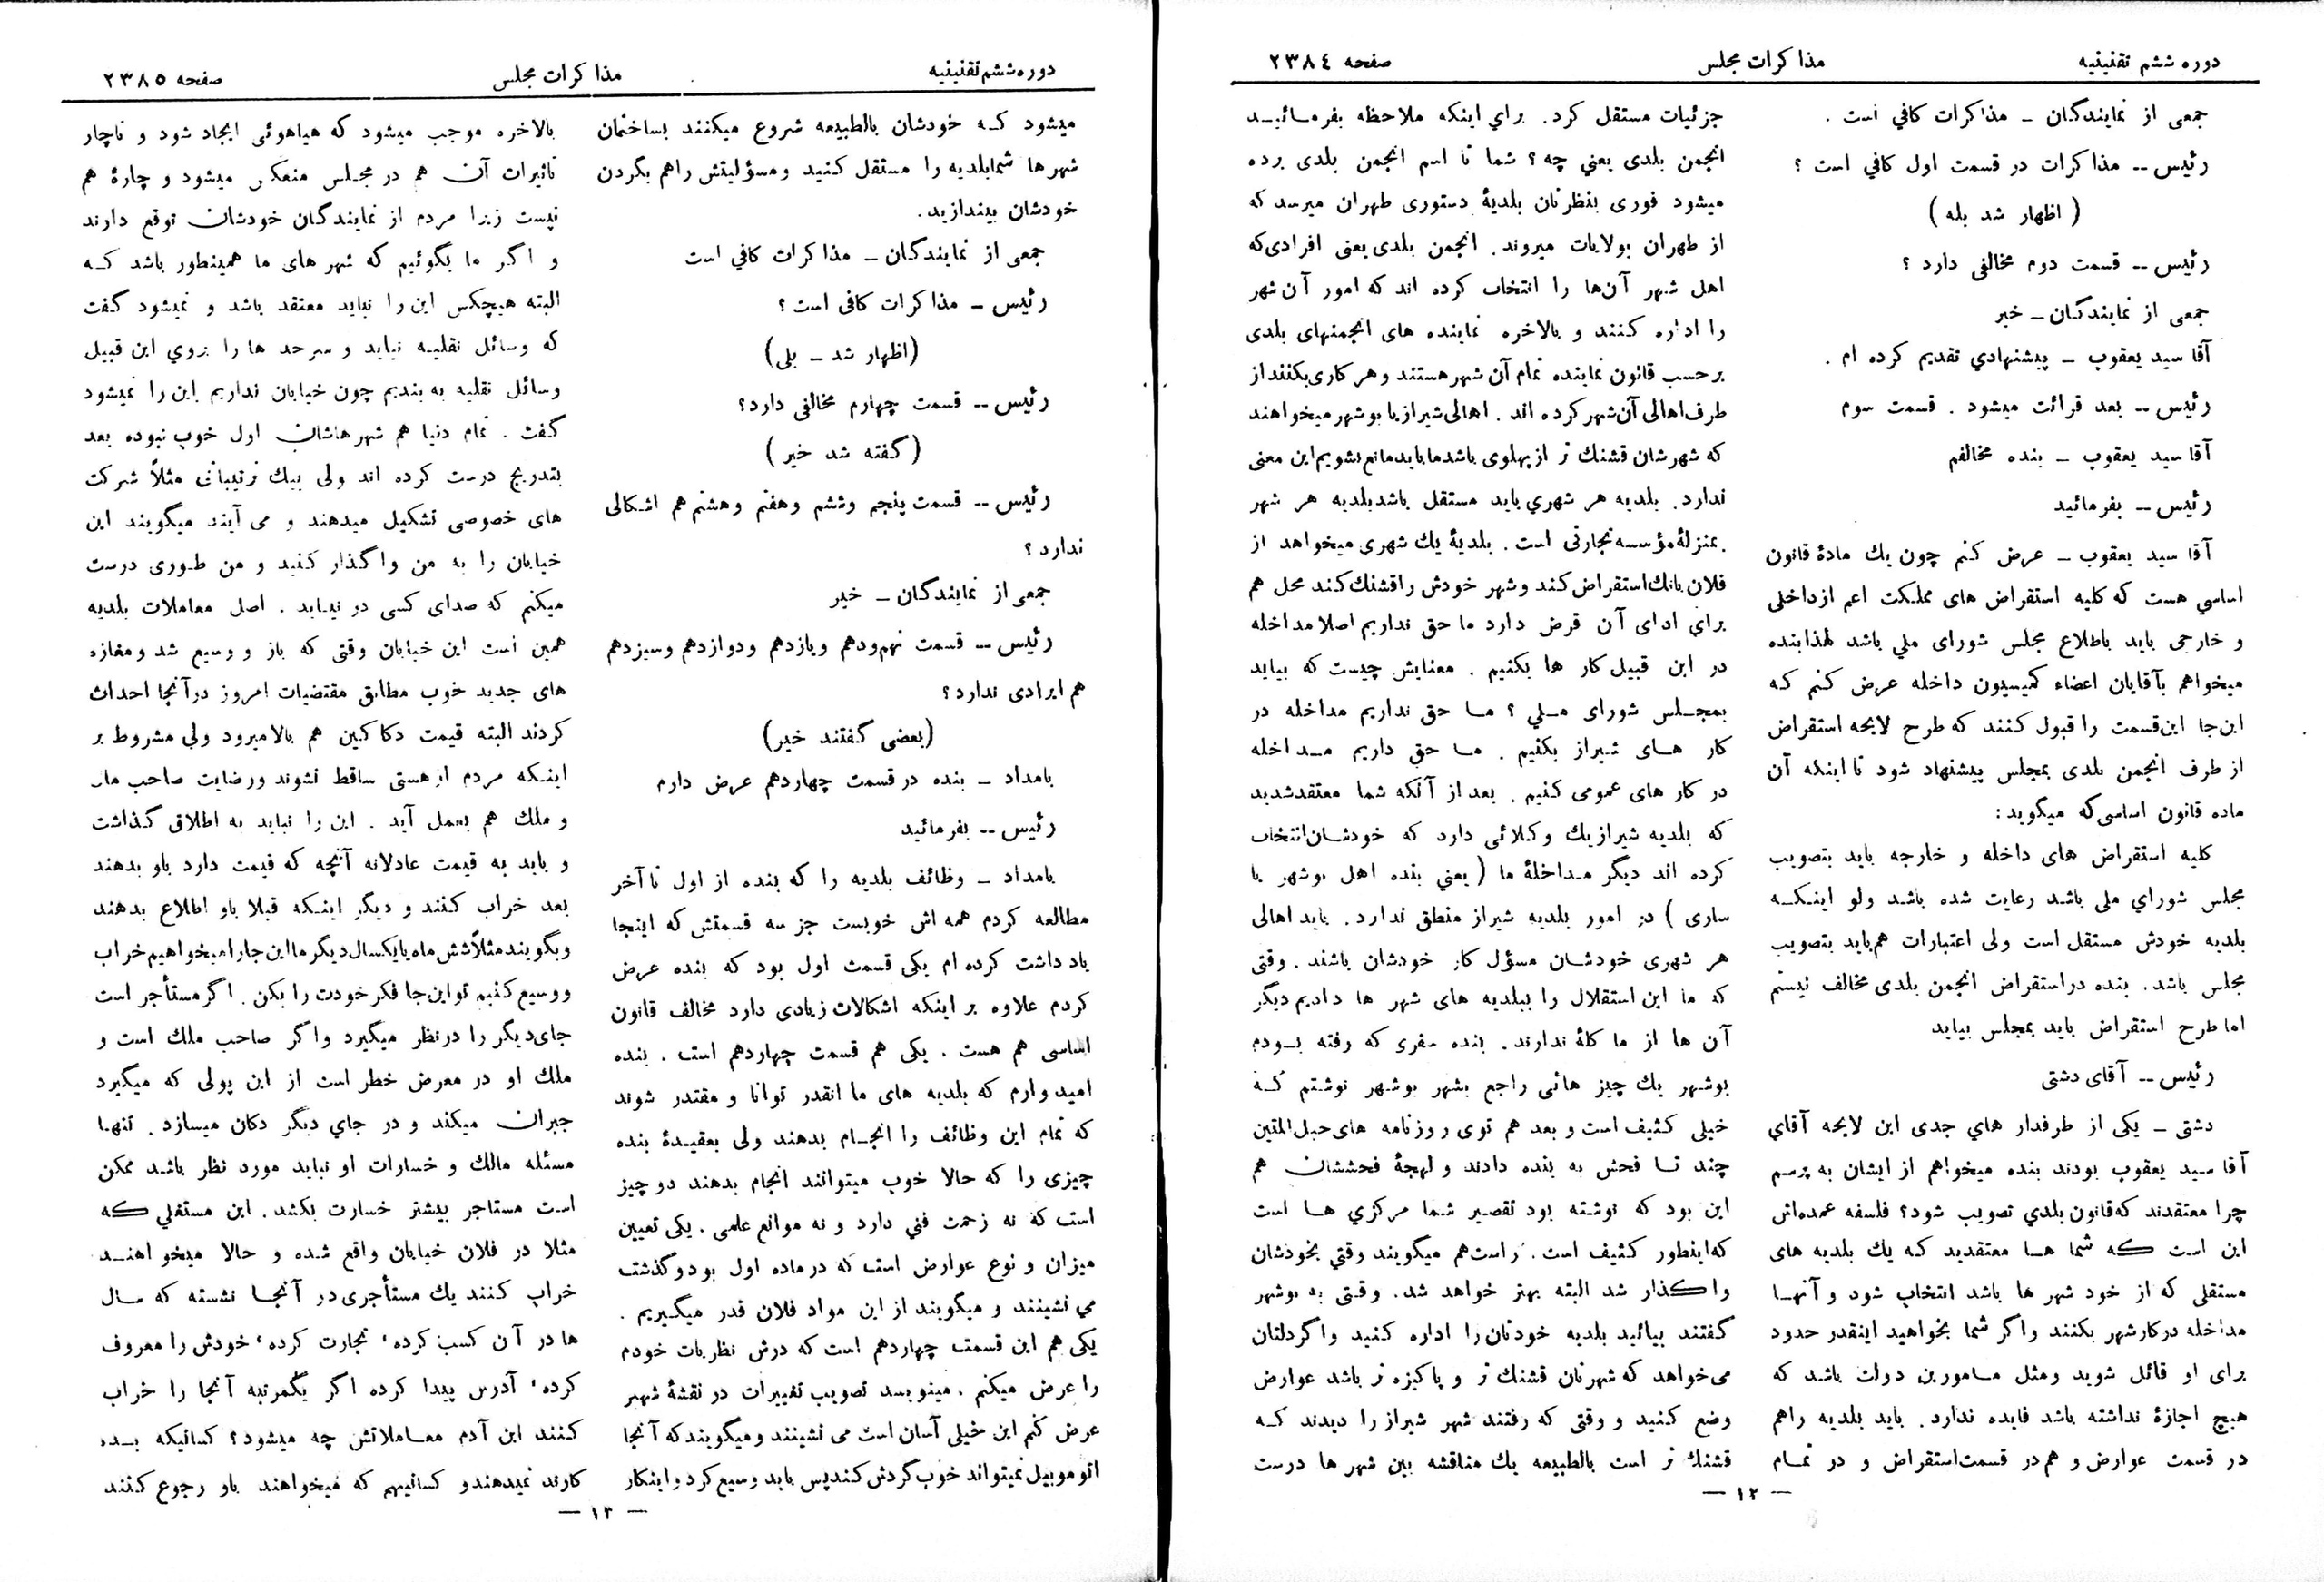 دوره ششم تقنینیه
مذاکرات مجلس
صفحه ۲۳۸٤
جمعی از نمایندگان ــ مذاکرات کافي است .
رئیس -- مذاکرات در قسمت اول کافي است ؟
( اظهار شد بله )
رئیس -- قسمت دوم مخالفی دارد ؟
جمعی از نمایندگان ــ خیر
آقا سید یعقوب ــ پیشنهادي تقدیم کرده ام .
رئیس -- بعد قرائت میشود . قسمت سوم
آقا سید یعقوب ــ بنده مخالفم
رئیس -- بفرمائید
آقا سید یعقوب ــ عرض کنم چون یك مادهٔ قانون
اساسي هست که کلیه استقراض های مملکت اعم از داخلی
و خارجی باید باطلاع مجلس شورای ملي باشد لهذا بنده
میخواهم بآقایان اعضاء کمیسیون داخله عرض کنم که
این جا این قسمت را قبول کنند که طرح لایحه استقراض
از طرف انجمن بلدی بمجلس پیشنهاد شود تا اینکه آن
ماده قانون اساسی که میگوید :
کلیه استقراض های داخله و خارجه باید بتصویب
مجلس شوراي ملی باشد رعایت شده باشد ولو اینکه
بلدیه خودش مستقل است ولی اعتبارات هم باید بتصویب
مجلس باشد . بنده در استقراض انجمن بلدی مخالف نیستم
اما طرح استقراض باید بمجلس بیاید
رئیس -- آقای دشتی
دشتی ــ یکی از طرفدار هاي جدی این لایحه آقاي
آقا سید یعقوب بودند بنده میخواهم از ایشان به پرسم
چرا معتقدند که قانون بلدي تصویب شود ؟ فلسفه عمده‌اش
این است که شما ها معتقدید که یك بلدیه های
مستقلی که از خود شهر ها باشد انتخاب شود و آنها
مداخله در کار شهر بکنند و اگر شما بخواهید اینقدر حدود
برای او قائل شوید و مثل مامورین دولت باشد که
هیچ اجازهٔ نداشته باشد فایده ندارد . باید بلدیه را هم
در قسمت عوارض و هم در قسمت استقراض و در تمام
جزئیات مستقل کرد . براي اینکه ملاحظه بفرمائید
انجمن بلدی یعني چه ؟ شما تا اسم انجمن بلدی برده
میشود فوری بنظرتان بلدیهٔ دستوری طهران میرسد که
از طهران بولایات میروند . انجمن بلدی یعنی افرادی که
اهل شهر آن‌ها را انتخاب کرده اند که امور آن شهر
را اداره کنند و بالاخره نماینده های انجمنهای بلدی
بر حسب قانون نماینده تمام آن شهر هستند و هر کاری بکنند از
طرف اهالی آن شهر کرده اند . اهالی شیراز یا بوشهر میخواهند
که شهرشان قشنك تر از پهلوی باشد ما باید مانع نشویم این معنی
ندارد . بلدیه هر شهري باید مستقل باشد بلدیه هر شهر
بمنزلهٔ مؤسسه تجارتی است . بلدیهٔ یك شهری میخواهد از
فلان بانك استقراض کند و شهر خودش را قشنك کند محل هم
براي ادای آن قرض دارد ما حق نداریم اصلا مداخله
در این قبیل کار ها بکنیم . معنایش چیست که بیاید
بمجلس شورای ملي ؟ ما حق نداریم مداخله در
کار های شیراز بکنیم . ما حق داریم مداخله
در کار های عمومی کنیم . بعد از آنکه شما معتقد شدید
که بلدیه شیراز یك وکلائی دارد که خودشان انتخاب
کرده اند دیگر مداخلهٔ ما ( یعني بنده اهل بوشهر یا
ساری ) در امور بلدیه شیراز منطق ندارد . باید اهالی
هر شهری خودشان مسؤل کار خودشان باشند . وقتی
که ما این استقلال را ببلدیه های شهر ها دادیم دیگر
آن ها از ما کلهٔ ندارند . بنده سفری که رفته بودم
بوشهر یك چیز هائی راجع بشهر بوشهر نوشتم که
خیلی کثیف است و بعد هم توی روزنامه های حبل المتین
چند تا فحش به بنده دادند و لهجهٔ فحششان هم
این بود که نوشته بود تقصیر شما مرکزي ها است
که اینطور کثیف است . راست هم میگویند وقتي بخودشان
واگذار شد البته بهتر خواهد شد . وقتی به بوشهر
گفتند بیائید بلدیه خودتان را اداره کنید و اگر دلتان
می خواهد که شهرتان قشنك تر و پاکیزه تر باشد عوارض
وضع کنید و وقتی که رفتند شهر شیراز را دیدند که
قشنك تر است بالطبیعه یك مناقشه بین شهر ها درست
— ۱۲ —
دوره ششم تقنینیه
مذاکرات مجلس
صفحه ۲۳۸٥
میشود که خودشان بالطبیعه شروع میکنند بساختمان
شهر ها شما بلدیه را مستقل کنید و مسؤلیتش را هم بگردن
خودشان بیندازید .
جمعی از نمایندگان ــ مذاکرات کافي است
رئیس ــ مذاکرات کافی است ؟
(اظهار شد ــ بلی)
رئیس -- قسمت چهارم مخالفی دارد؟
(گفته شد خیر)
رئیس -- قسمت پنجم وششم وهفتم وهشتم هم اشکالی
ندارد ؟
جمعی از نمایندگان ــ خیر
رئیس -- قسمت نهم ودهم ویازدهم ودوازدهم وسیزدهم
هم ایرادی ندارد ؟
(بعضی گفتند خیر)
بامداد ــ بنده در قسمت چهاردهم عرض دارم
رئیس -- بفرمائید
بامداد ــ وظائف بلدیه را که بنده از اول تا آخر
مطالعه کردم همه اش خوبست جز سه قسمتش که اینجا
یاد داشت کرده ام یکی قسمت اول بود که بنده عرض
کردم علاوه بر اینکه اشکالات زیادی دارد مخالف قانون
اساسی هم هست . یکی هم قسمت چهاردهم است . بنده
امید وارم که بلدیه های ما انقدر توانا و مقتدر شوند
که تمام این وظائف را انجام بدهند ولی بعقیدهٔ بنده
چیزی را که حالا خوب میتوانند انجام بدهند دو چیز
است که نه زحمت فني دارد و نه موانع علمی . یکی تعیین
میزان و نوع عوارض است که در ماده اول بود و گذشت
مي نشینند و میگویند از این مواد فلان قدر میگیریم .
یکی هم این قسمت چهاردهم است که درش نظریات خودم
را عرض میکنم . مینویسد تصویب تغییرات در نقشهٔ شهر
عرض کنم این خیلی آسان است می نشینند و میگویند که آنجا
اتوموبیل نمیتواند خوب گردش کند پس باید وسیع کرد و اینکار
بالاخره موجب میشود که هیاهوئی ایجاد شود و ناچار
تاثیرات آن هم در مجلس منعکس میشود و چارهٔ هم
نیست زیرا مردم از نمایندگان خودشان توقع دارند
و اگر ما بگوئیم که شهر های ما همینطور باشد که
البته هیچکس این را نباید معتقد باشد و نمیشود گفت
که وسائل نقلیه نیاید و سرحد ها را بروي این قبیل
وسائل نقلیه به بندیم چون خیابان نداریم این را نمیشود
گفت . تمام دنیا هم شهر هاشان اول خوب نبوده بعد
بتدریج درست کرده اند ولی بیك ترتیباتی مثلاً شرکت
های خصوصی تشکیل میدهند و می آیند میگویند این
خیابان را به من واگذار کنید و من طوری درست
میکنم که صدای کسی در نیاید . اصل معاملات بلدیه
همین است این خیابان وقتی که باز و وسیع شد و مغازه
های جدید خوب مطابق مقتضیات امروز در آنجا احداث
کردند البته قیمت دکاکین هم بالا میرود ولی مشروط بر
اینکه مردم از هستی ساقط نشوند و رضایت صاحب مال
و ملك هم بعمل آید . این را نباید به اطلاق گذاشت
و باید به قیمت عادلانه آنچه که قیمت دارد باو بدهند
بعد خراب کنند و دیگر اینکه قبلا باو اطلاع بدهند
و بگویند مثلاً شش ماه یا یکسال دیگر ما این جا را میخواهیم خراب
و وسیع کنیم تو این جا فکر خودت را بکن . اگر مستأجر است
جای دیگر را در نظر میگیرد و اگر صاحب ملك است و
ملك او در معرض خطر است از این پولی که میگیرد
جبران میکند و در جاي دیگر دکان میسازد . تنها
مسئله مالك و خسارات او نباید مورد نظر باشد ممکن
است مستاجر بیشتر خسارت بکشد . این مستغلي که
مثلا در فلان خیابان واقع شده و حالا میخواهند
خراب کنند یك مستأجری در آنجا نشسته که سال
ها در آن کسب کرده ، تجارت کرده ، خودش را معروف
کرده ، آدرس پیدا کرده اگر یکمرتبه آنجا را خراب
کنند این آدم معاملاتش چه میشود؟ کسانیکه بده
کارند نمیدهند و کسانیهم که میخواهند باو رجوع کنند
— ۱۳ —